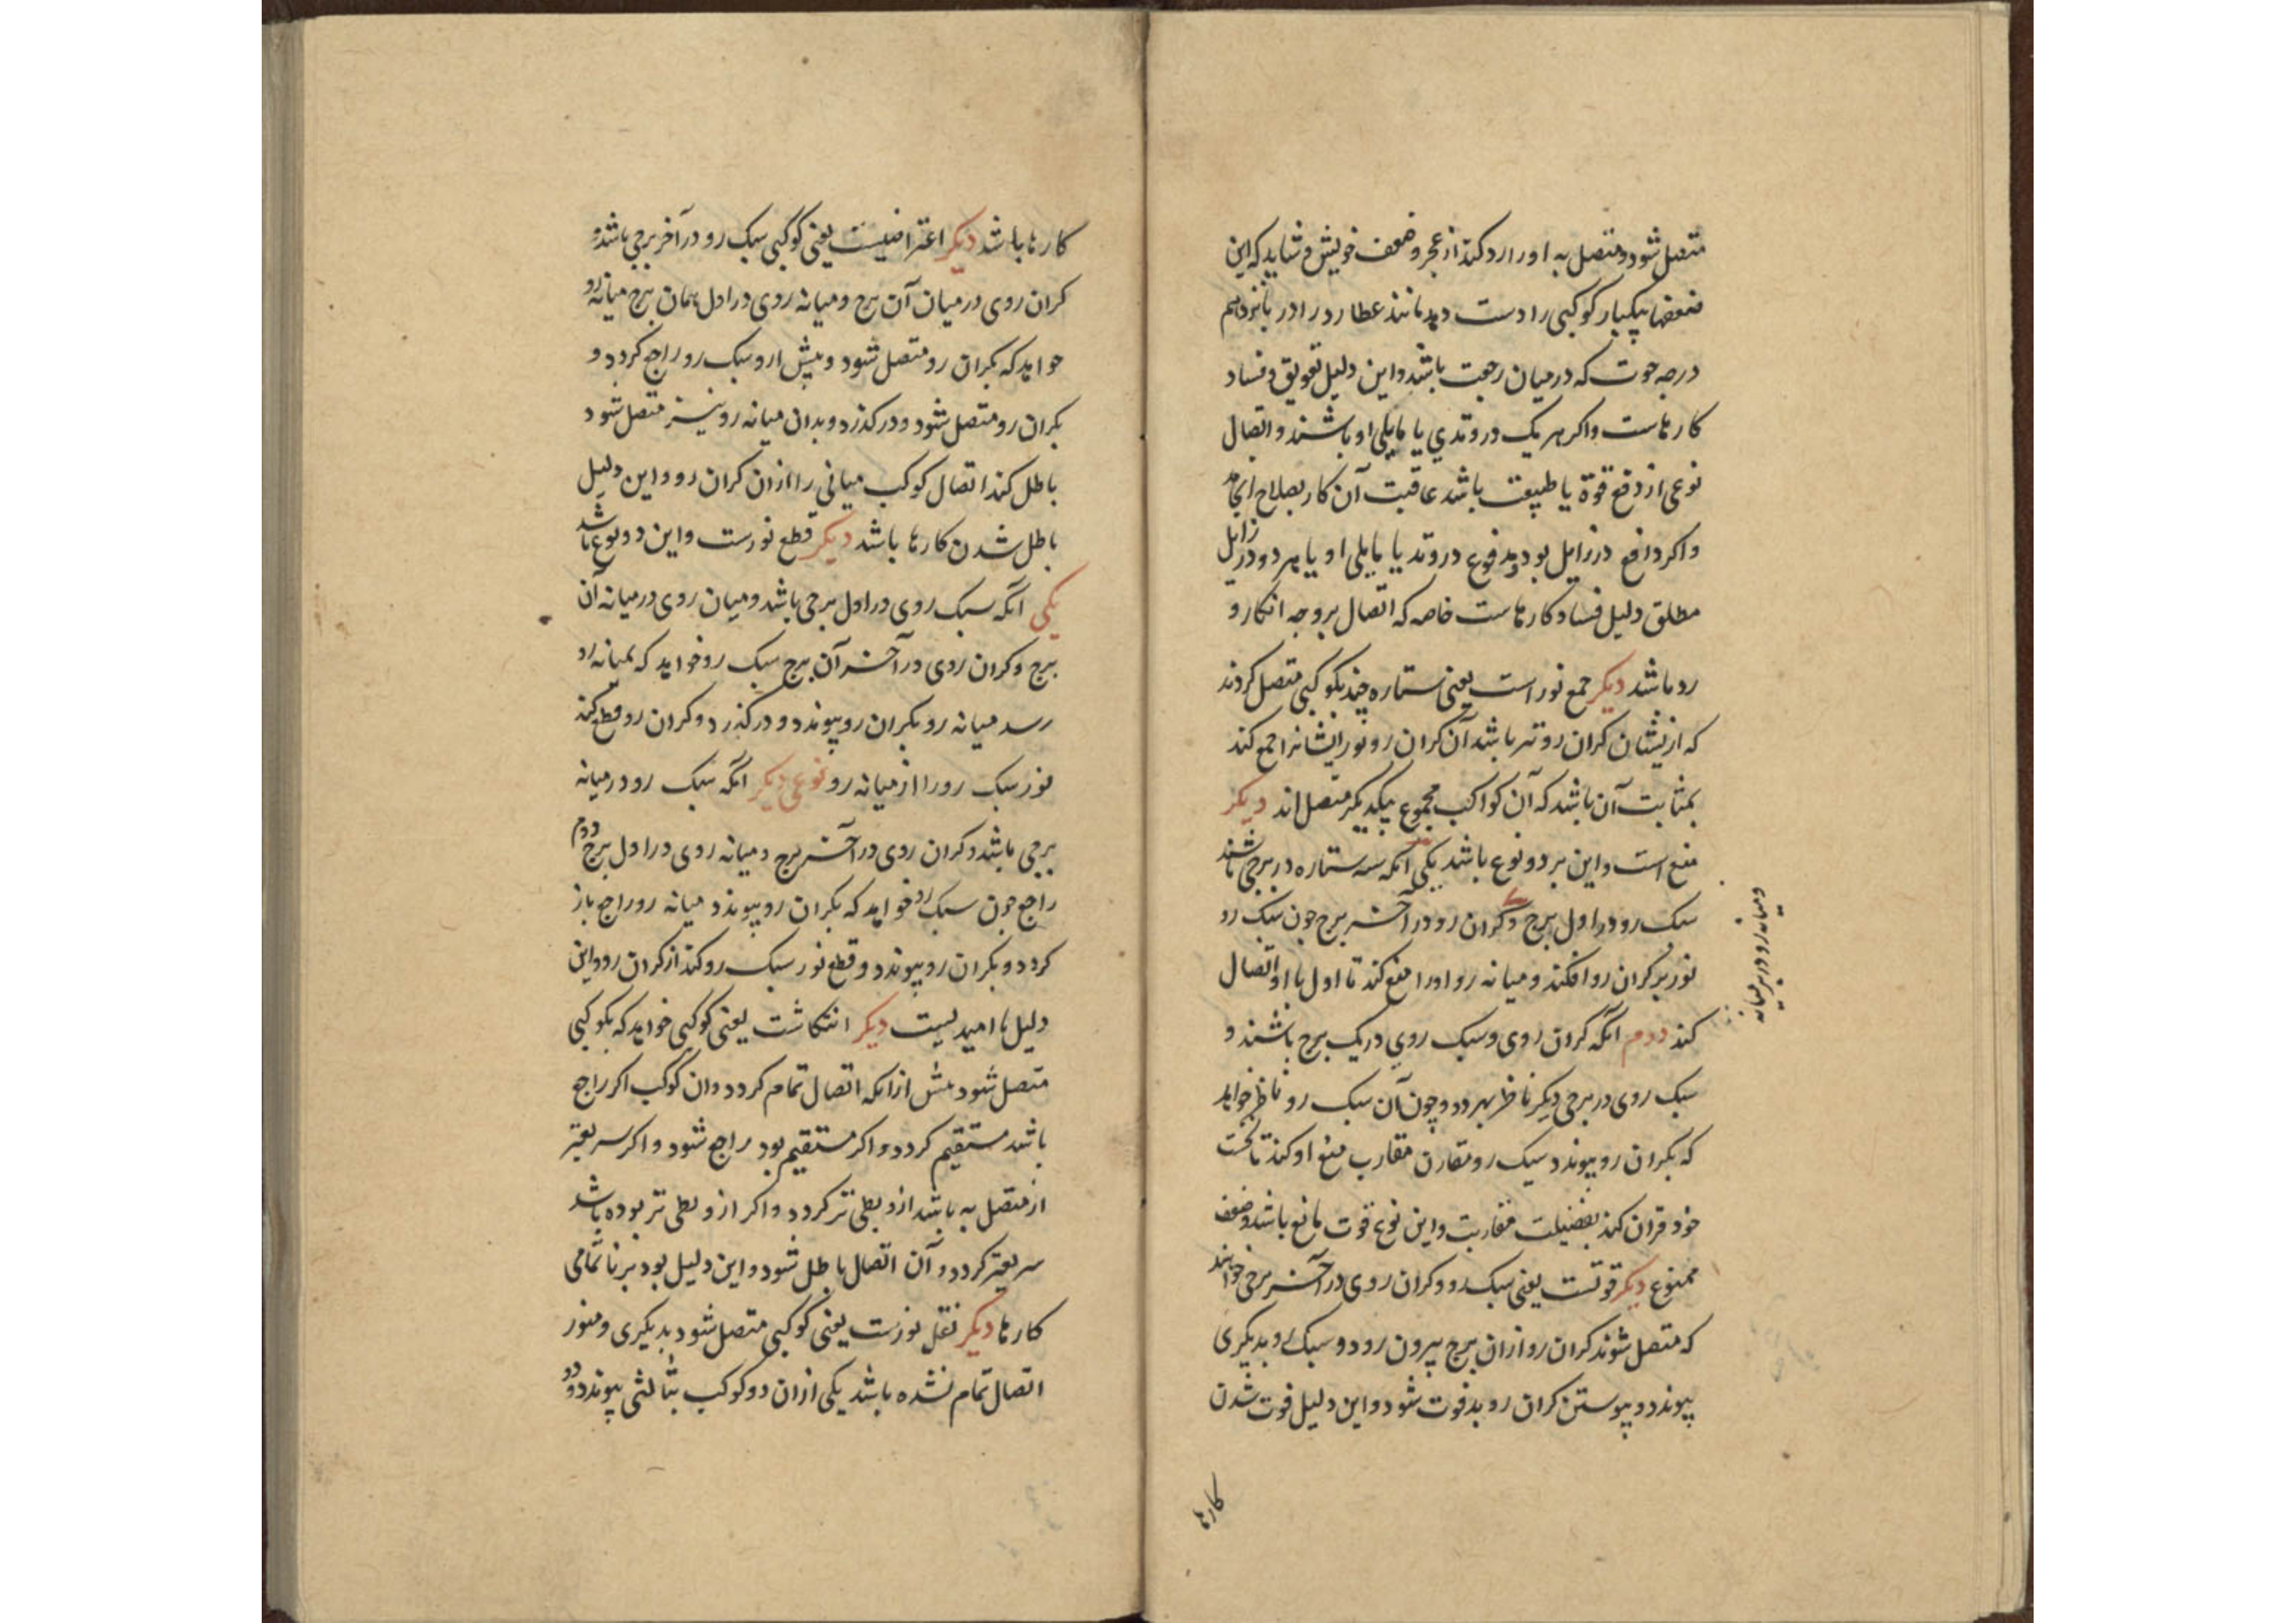 متصل شود و متصل به او را رد کند از عجز و ضعف خویش و شاید که این
ضعفها بیکبار کوکبی را دست دهد مانند عطارد را در پانزدهم
درجه حوت که در میان رجعت باشد و این دلیل تعویق و فساد
کارهاست و اکر هر یک در وتدی یا مایلی او باشند و اتصال
نوعی از دفع قوة یا طبیعت باشد عاقبت آن کار بصلاح انجامد
و اکر دافع در زایل بود و مدفوع در وتد یا مایلی او یا هر دو در زایل
مطلق دلیل فساد کارهاست خاصه که اتصال بر وجه انکار و
رد باشد دیکر جمع نور است یعنی ستاره چند بکوکبی متصل کردند
که ازیشان کران روتر باشد آن کران رو نور ایشانرا جمع کند
بمثابت آن باشد که آن کواکب مجموع بیکدیکر متصل اند دیکر
منع است و این بر دو نوع باشد یکی آنکه سه ستاره در برجی باشند
سبک رو در اول برج و کران رو در آخر برج جون سبک رو
ومیانه رو در میانه
نور بر کران رو افکند و میانه رو او را منع کند تا اول با او اتصال
کند دوم آنکه کران روی و سبک روی در یک برج باشند و
سبک روی در برجی دیکر ناظر بهر دو و چون آن سبک رو ناظر خواهد
که بکران رو پیوندد سبک رو مقارن مقارب منع او کند تا نخست
خود قران کند بفضیلت مقاربت و این نوع قوت مانع باشد و ضعف
ممنوع دیکر فوتست یعنی سبک رو و کران روی در آخر برجی خواهند
که متصل شوند کران رو از ان برج بیرون رود و سبک رو بدیکری
پیوندد و پیوستن کران رو بد فوت شود و این دلیل فوت شدن
کارها
کارها باشد دیکر اعتراضیست یعنی کوکبی سبک رو در آخر برجی باشد و
کران روی در میان آن برج و میانه روی در اول همان برج میانه رو
خواهد که بکران رو متصل شود و پیش ازو سبک رو راجع کردد و
بکران رو متصل شود و درکذرد و بدان میانه رو نیز متصل شود
باطل کند اتصال کوکب میانی را ازان کران رو و این دلیل
باطل شدن کارها باشد دیکر قطع نورست و این دو نوع باشد
یکی آنکه سبک روی در اول برجی باشد و میان روی در میانه آن
برج و کران روی در آخر آن برج سبک رو خواهد که بمیانه رو
رسد میانه رو بکران رو پیوندد و درکذرد و کران رو قطع کند
نور سبک رو را از میانه رو نوعی دیکر آنکه سبک رو در میانه
برجی باشد و کران روی در آخر برج و میانه روی در اول برج دوم
راجع جون سبک رو خواهد که بکران رو پیوندد میانه رو راجع باز
کردد و بکران رو پیوندد و قطع نور سبک رو کند از کران رو و این
دلیل نا امیدیست دیکر انتکاثست یعنی کوکبی خواهد که بکوکبی
متصل شود پیش از انکه اتصال تمام کردد و ان کوکب اکر راجع
باشد مستقیم کردد و اکر مستقیم بود راجع شود و اکر سریعتر
از متصل به باشد ازو بطی تر کردد و اکر ازو بطی تر بوده باشد
سریعتر کردد و آن اتصال باطل شود و این دلیل بود بر ناتمامی
کارها دیکر نقل نورست یعنی کوکبی متصل شود بدیکری و هنوز
اتصال تمام نشده باشد یکی از ان دو کوکب بثالثی پیوندد و